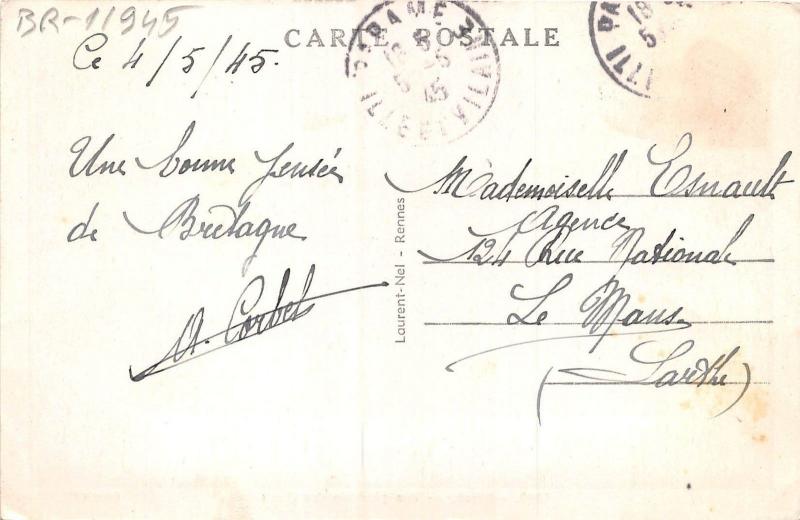 BR-11945
CARTE POSTALE
Ce 4/5/45.
PARAMÉ
ILLE ET VILAINE
18
5-5
45
PA
ILLE
18
5
Une bonne pensée
de Bretagne
A. Corbel
Laurent-Nel - Rennes
Mademoiselle Esnault
Agence
124 Rue National
Le Mans
(Sarthe)